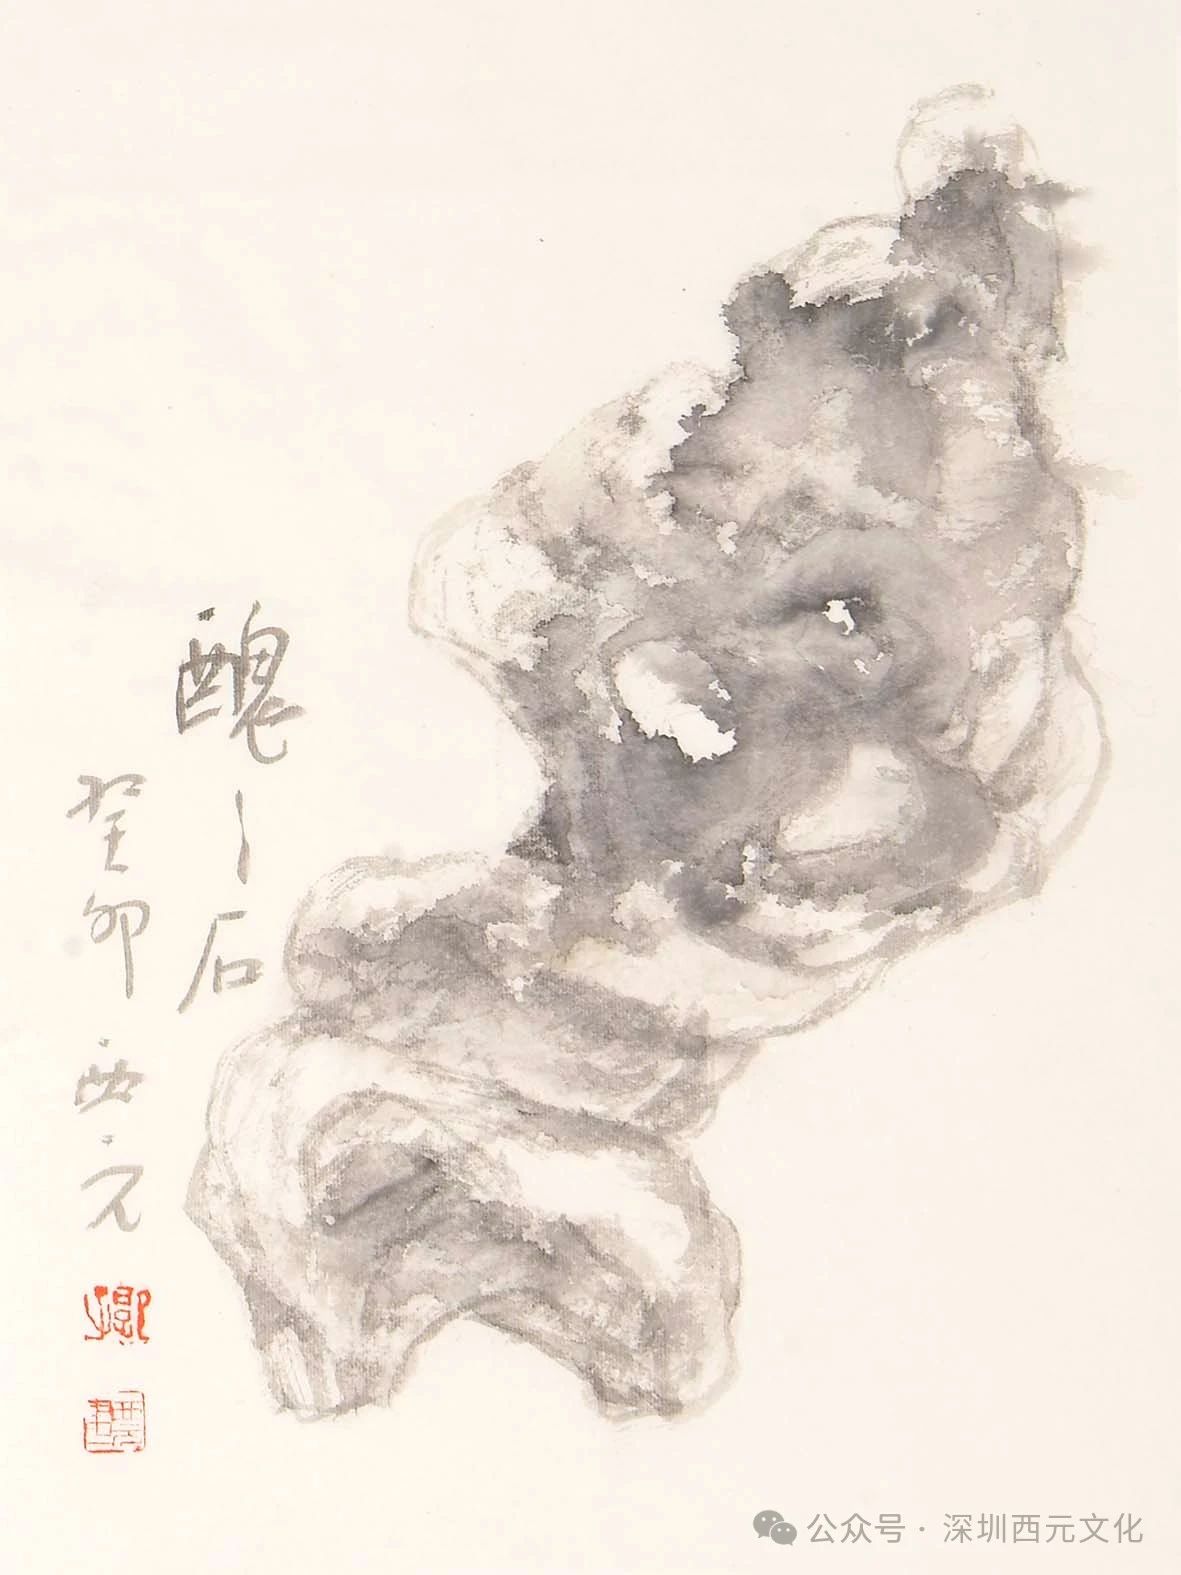 醜〻石
癸卯 西元
公众号 · 深圳西元文化